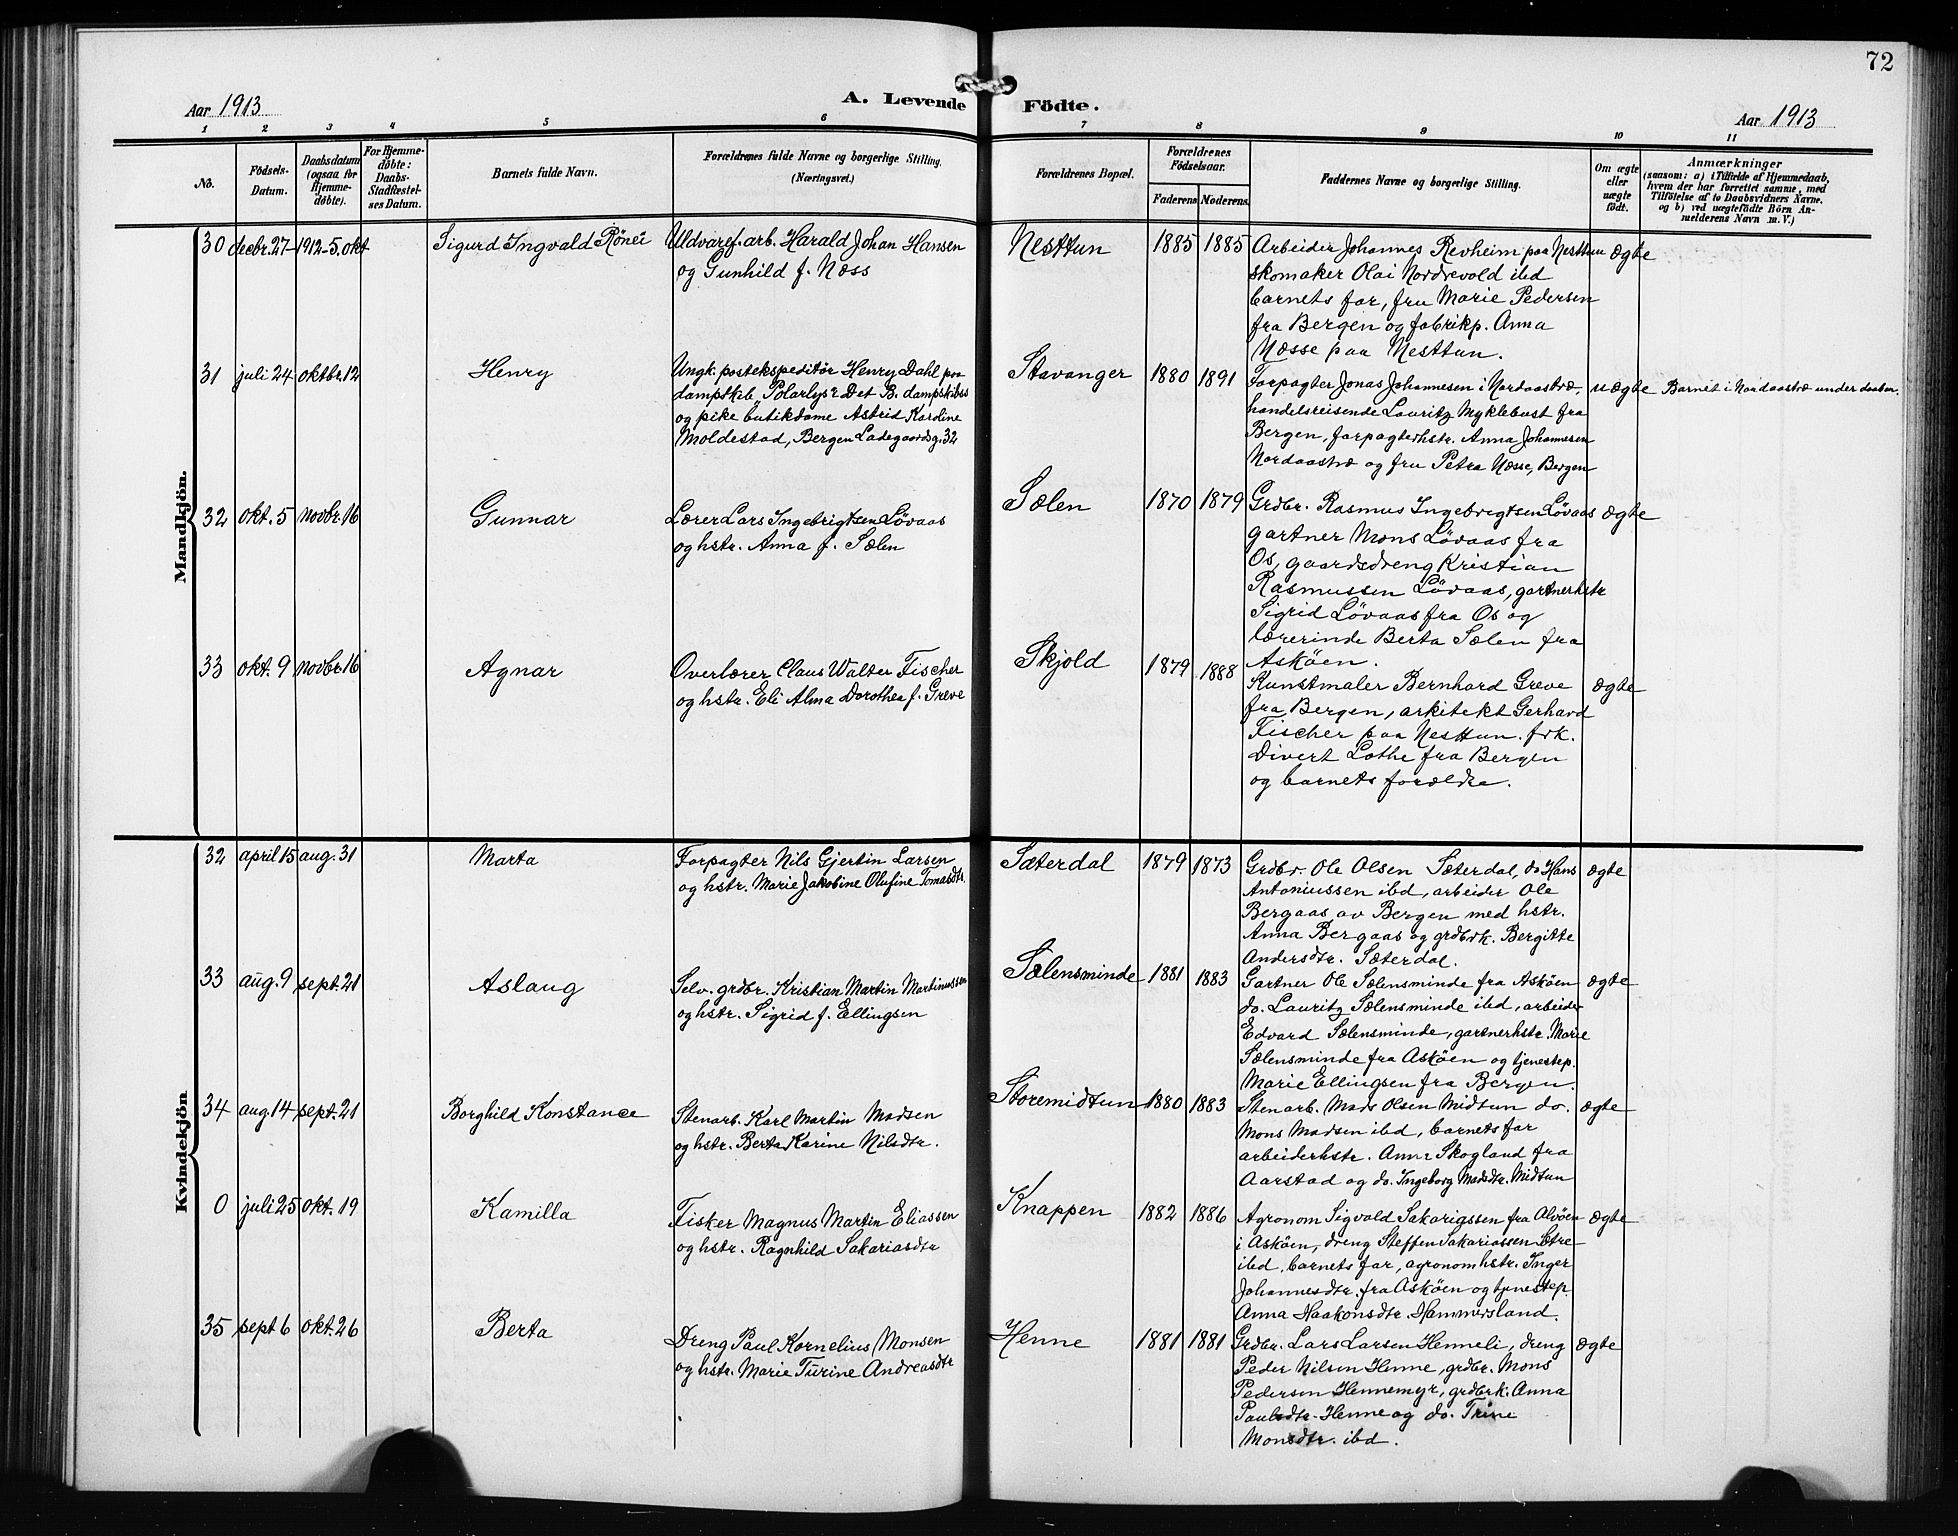 72
Aar 1913
A. Levende Födte.
Aar 1913
1 2 3 4 5 6 7 8 9 10 11
No.
Födsels-
Datum.
Daabsdatum
(ogsaa for
Hjemme-
döbte).
For Hjemme-
döbte:
Daabs-
Stadfæstel-
ses Datum.
Barnets fulde Navn.
Forældrenes fulde Navne og borgerlige Stilling.
(Næringsvei.)
Forældrenes Bopæl.
Forældrenes
Födselsaar.
Faderens Moderens.
Faddernes Navne og borgerlige Stilling.
Om ægte
eller
uægte
födt.
Anmærkninger
(saasom: a) i Tilfælde af Hjemmedaab,
hvem der har forrettet samme, med
Tilföielse af to Daabsvidners Navne.
og b) ved uægtefödte Börn An-
melderens Navn m. V.)
Mandkjön.
30 decbr. 27-1912-5. okt Sigurd Ingvald Rönei
Uldvaref. arb. Harald Johan Hansen
og Gunhild f. Næss
Nesttun 1885 1885
Arbeider Johannes Revheim paa Nesttun
skomaker Olai Nordrevold ibd
barnets far, fru Marie Pedersen
fra Bergen og fabrikp. Anna
Næsse paa Nesttun.
ægte
31 juli 24 oktbr. 12 Henry
Ungk. postekspeditör Henry Dahl paa
dampskib Polarlys Det B. dampskibss
og pike butikdame Astrid Karoline
Moldestad, Bergen Ladegaardsg. 32
Stavanger 1880 1891
Forpagter Jonas Johannesen i Nordaastræ,
handelsreisende Lauritz Myklebust fra
Bergen, forpagterhstr. Anna Johannesen
Nordaastræ og fru Petra Næsse, Bergen
uægte
Barnet i Nordaastræ under daaben.
32 okt. 5 novbr. 16 Gunnar
Lærer Lars Ingebrigtsen Lövaas
og hstr. Anna f. Sælen
Sælen 1870 1879
Grdbr. Rasmus Ingebrigtsen Lövaas
gartner Mons Lövaas fra
Os, gaardsdreng Kristian
Rasmussen Lövaas, gartnerhstr
Sigrid Lövaas fra Os og
lærerinde Berta Sælen fra
Asköen.
ægte
33 okt. 9 novbr. 16 Agnar
Overlærer Claus Walter Fischer
og hstr. Eli Alma Dorothea f. Greve
Skjold 1879 1888
Kunstmaler Bernhard Greve
fra Bergen, arkitekt Gerhard
Fischer paa Nesttun. frk.
Divert Lothe fra Bergen
og barnets forældre.
ægte
Kvindekjön
32 april 15 aug. 31 Marta
Forpagter Nils Gjertin Larsen
og hstr. Marie Jakobine Olufine Tomasdtr.
Sæterdal 1879 1873
Grdbr. Ole Olsen Sæterdal, do Hans
Antoniussen ibd, arbeider Ole
Bergaas av Bergen med hstr.
Anna Bergaas og grdbrk. Bergitte
Andersdtr. Sæterdal.
ægte
33 aug. 9 sept. 21 Aslaug
Selv. grdbr. Kristian Martin Martinussen
og hstr. Sigrid f. Ellingsen
Sælensminde 1881 1883
Gartner Ole Sælensminde fra Asköen
do. Lauritz Sælensminde ibd, arbeider
Edvard Sælensminde, gartnerhstr. Marie
Sælensminde fra Asköen og tjenestep.
Marie Ellingsen fra Bergen.
ægte
34 aug. 14 sept. 21 Borghild Konstance
Stenarb. Karl Martin Madsen
og hstr. Berta Karine Nilsdtr.
Storemidtun 1880 1883
Stenarb. Mads Olsen Midtun do.
Mons Madsen ibd, barnets far
arbeiderhstr. Anna Skogland fra
Aarstad og do. Ingeborg Madsdtr. Midtun
ægte
0 juli 25 okt. 19 Kamilla
Fisker Magnus Martin Eliassen
og hstr. Ragnhild Sakariasdtr
Knappen 1882 1886
Agronom Sigvald Sakariassen fra Alvöen
i Asköen, dreng Steffen Sakariassen Sætre
ibd, barnets far, agronomhstr. Inger
Johannesdtr. fra Asköen og tjenestep.
Anna Haakonsdtr. Hammersland.
ægte
35 sept 6 okt. 26 Berta
Dreng Paul Kornelius Monsen
og hstr. Marie Turine Andreasdtr
Henne 1881 1881
Grdbr. Lars Larsen Henneli, dreng
Peder Nilsen Henne, grdbr. Mons
Pedersen Hennemyr, grdbrk. Anna
Paulsdtr. Henne og do. Trine
Monsdtr. ibd.
ægte